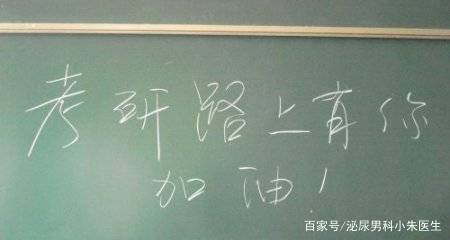 考研路上有你
加油！
百家号/泌尿男科小朱医生